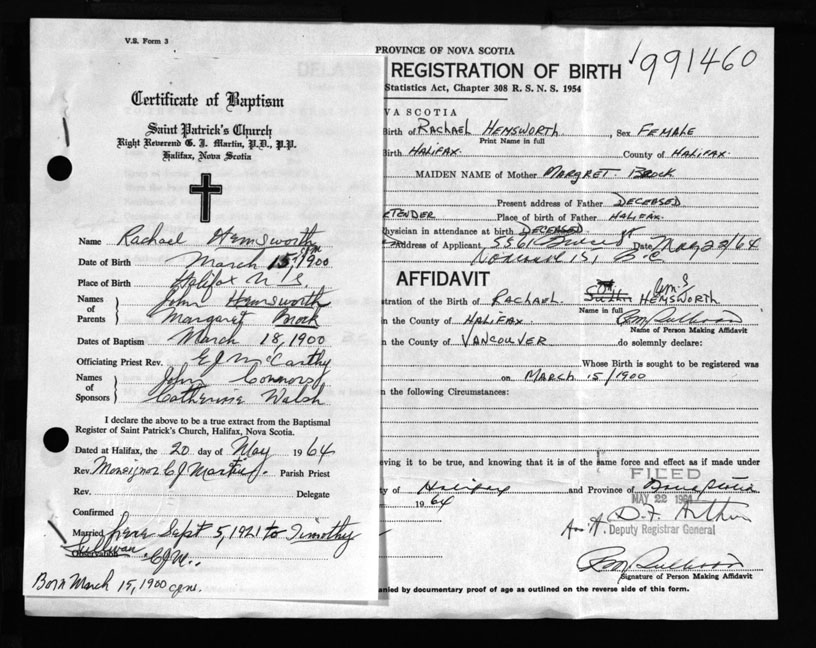 V.S. Form 3
Certificate of Baptism
Saint Patrick's Church
Right Reverend G. J. Martin, P.D., P.P.
Halifax, Nova Scotia
Name Rachael Hemsworth
Date of Birth March 15, 1900
Place of Birth Halifax N.S.
Names of Parents John Hemsworth
Margaret Brock
Dates of Baptism March 18, 1900
Officiating Priest Rev. E J McCarthy
Names of Sponsors John Connors
Catherine Walsh
I declare the above to be a true extract from the Baptismal
Register of Saint Patrick's Church, Halifax, Nova Scotia.
Dated at Halifax, the 20 day of May 1964
Rev. Monsignor G J Martin. Parish Priest
Rev. Delegate
Confirmed
Married here Sept 5, 1921 to Timothy
Sullivan
Observation
Born March 15, 1900
PROVINCE OF NOVA SCOTIA
991460
REGISTRATION OF BIRTH
Statistics Act, Chapter 308 R. S. N. S. 1954
VA SCOTIA
Birth of RACHAEL HEMSWORTH, Sex FEMALE
Print Name in full
Birth HALIFAX. County of HALIFAX.
MAIDEN NAME of Mother MARGRET BROCK
Present address of Father DECEASED
RTENDER Place of birth of Father HALIFAX.
hysician in attendance at birth DECEASED
Address of Applicant, 5861 Date May 22/64
B.C
AFFIDAVIT
stration of the Birth of RACHAEL HEMSWORTH
Name in full
in the County of HALIFAX.
Name of Person Making Affidavit
n the County of VANCOUVER do solemnly declare:
Whose Birth is sought to be registered was
on MARCH 15/1900
n the following Circumstances:
eving it to be true, and knowing that it is of the same force and effect as if made under
FILED
ty of Halifax and Province of Nova Scotia
MAY 22 1964
1964
D. F. Arthur
Deputy Registrar General
Signature of Person Making Affidavit
anied by documentary proof of age as outlined on the reverse side of this form.